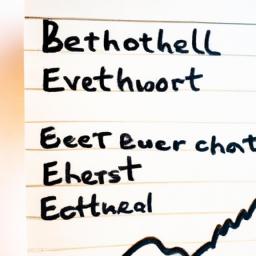 Bethothell
Evethwort
EeeT Euer chat
Eherst
Ecthueal